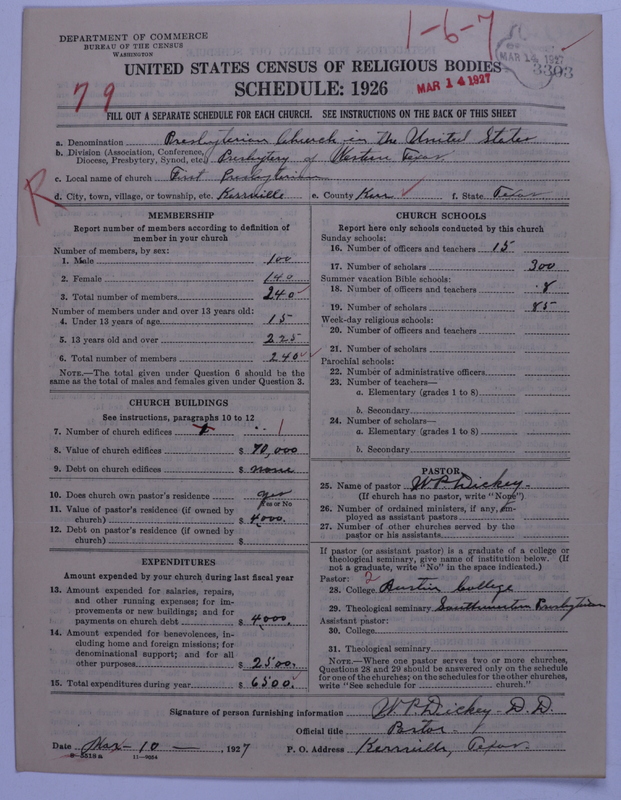 DEPARTMENT OF COMMERCE
BUREAU OF THE CENSUS
WASHINGTON
1-6-7
MAR 14 1927
3303
79
UNITED STATES CENSUS OF RELIGIOUS BODIES
SCHEDULE: 1926
MAR 14 1927
FILL OUT A SEPARATE SCHEDULE FOR EACH CHURCH. SEE INSTRUCTIONS ON THE BACK OF THIS SHEET
a. Denomination Presbyterian Church in the United States
b. Division (Association, Conference, Diocese, Presbytery, Synod, etc.) Presbytery of Western Texas
c. Local name of church First Presbyterian
R
d. City, town, village, or township, etc. Kerrville e. County Kerr f. State Texas
MEMBERSHIP
Report number of members according to definition of
member in your church
Number of members, by sex:
1. Male 100
2. Female 140
3. Total number of members 240
Number of members under and over 13 years old:
4. Under 13 years of age 15
5. 13 years old and over 225
6. Total number of members 240
NOTE.—The total given under Question 6 should be
same as the total of males and females given under Question 3.
CHURCH BUILDINGS
See instructions, paragraphs 10 to 12
7. Number of church edifices 1
8. Value of church edifices $ 70,000
9. Debt on church edifices $ none
10. Does church own pastor's residence yes
Yes or No
11. Value of pastor's residence (if owned by
church) $ 4000.
12. Debt on pastor's residence (if owned by
church) $
EXPENDITURES
Amount expended by your church during last fiscal year
13. Amount expended for salaries, repairs,
and other running expenses; for im-
provements or new buildings; and for
payments on church debt $ 4000.
14. Amount expended for benevolences, in-
cluding home and foreign missions; for
denominational support; and for all
other purposes $ 2500.
15. Total expenditures during year $ 6500.
CHURCH SCHOOLS
Report here only schools conducted by this church
Sunday schools:
16. Number of officers and teachers 15
17. Number of scholars 300
Summer vacation Bible schools:
18. Number of officers and teachers 8
19. Number of scholars 85
Week-day religious schools:
20. Number of officers and teachers
21. Number of scholars
Parochial schools:
22. Number of administrative officers
23. Number of teachers—
a. Elementary (grades 1 to 8)
b. Secondary
24. Number of scholars—
a. Elementary (grades 1 to 8)
b. Secondary
PASTOR
25. Name of pastor W. P. Dickey
(If church has no pastor, write "None")
26. Number of ordained ministers, if any, em-
ployed as assistant pastors
27. Number of other churches served by the
pastor or his assistants
If pastor (or assistant pastor) is a graduate of a college or
theological seminary, give name of institution below. (If
not a graduate, write "No" in the space indicated.)
Pastor: 2
28. College Austin College
29. Theological seminary Southwestern Presbyterian
Assistant pastor:
30. College
31. Theological seminary
NOTE.—Where one pastor serves two or more churches,
Questions 28 and 29 should be answered only on the schedule
for one of the churches; on the schedules for the other churches,
write "See schedule for church."
Signature of person furnishing information W. P. Dickey - D. D.
Official title Pastor
Date Mar - 10 —, 1927 P. O. Address Kerrville, Texas
8-5518a 11-9054